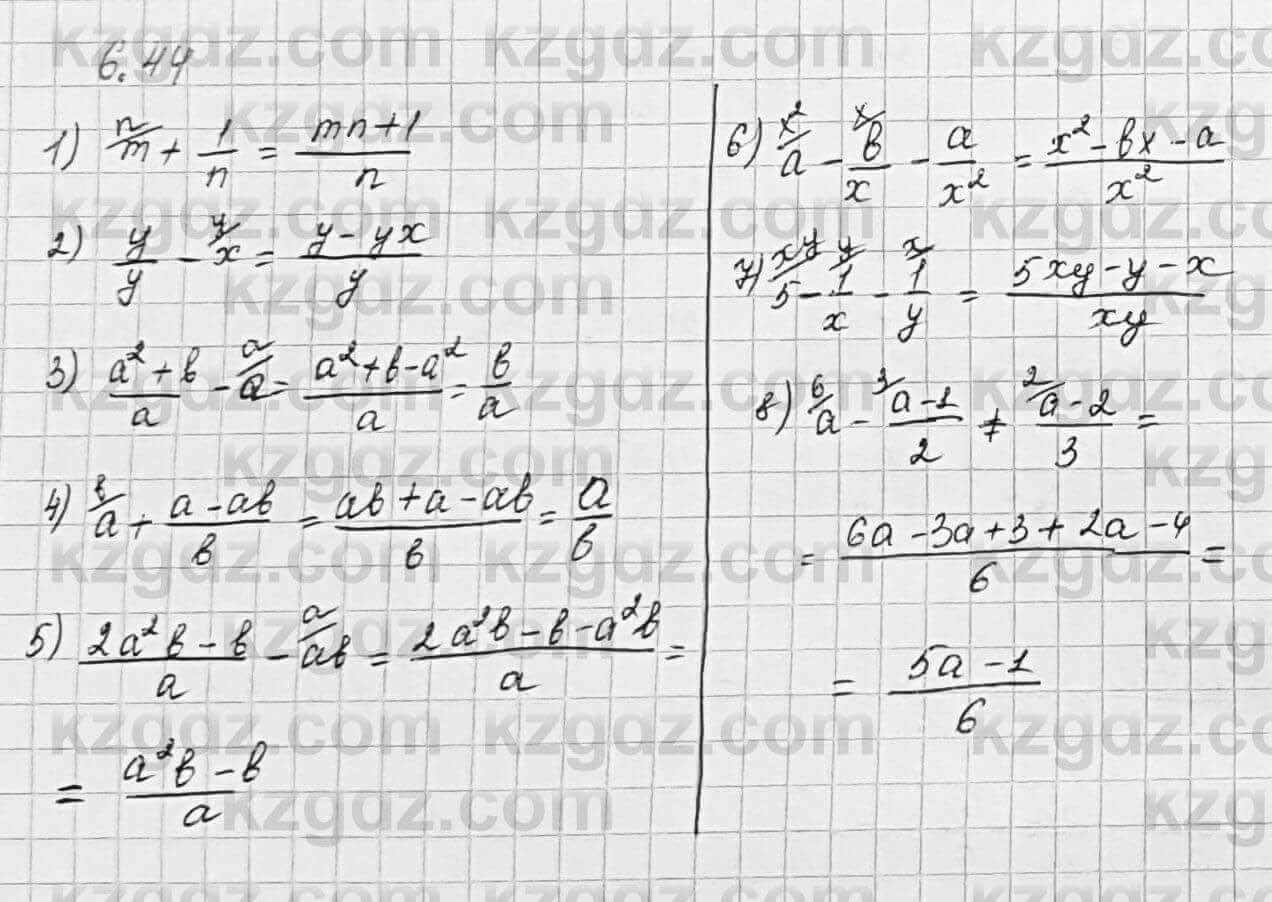 6.44
1) ⁿ/m + 1/n = (mn+1)/n
2) y/y - ʸ/x = (y-yx)/y
3) (a²+b)/a - ᵃ/a = (a²+b-a²)/a = b/a
4) ᵇ/a + (a-ab)/b = (ab+a-ab)/b = a/b
5) (2a²b-b)/a - ᵃ/ab = (2a²b-b-a²b)/a =
= (a²b-b)/a
6) x²/a - x/ b/x - a/x² = (x²-bx-a)/x²
7) xy/5 - y/ 1/x - x/ 1/y = (5xy-y-x)/xy
8) 6/a - 3/ (a-1)/2 + 2/ (a-2)/3 =
= (6a-3a+3+2a-4)/6 =
= (5a-1)/6
kzgdz.com